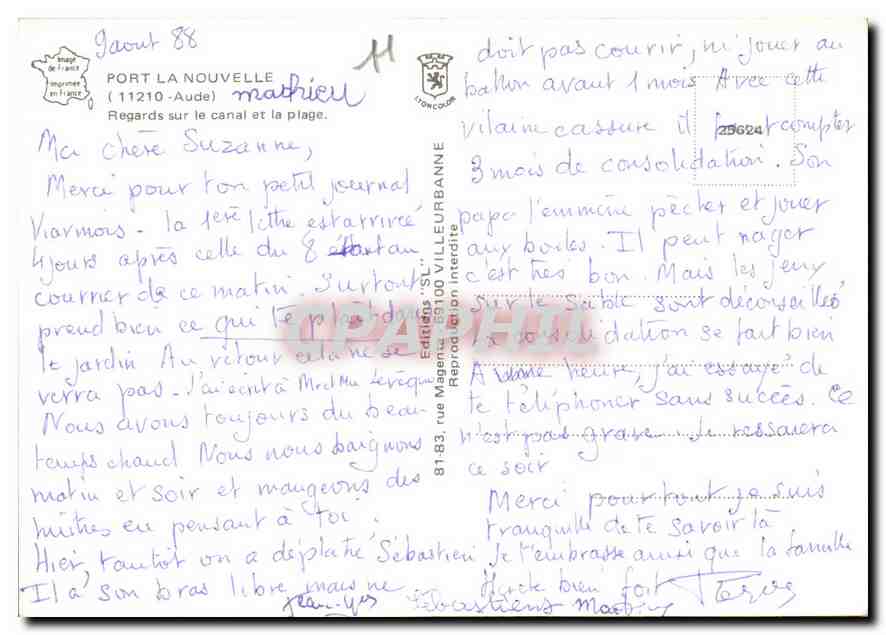 9 aout 88
11
Image
de France
Imprimée
en France
PORT LA NOUVELLE
(11210 -Aude)
Mathieu
Regards sur le canal et la plage.
Ma chère Suzanne,
Merci pour ton petit journal
Viarmois - la 1ère lettre est arrivée
4 jours après celle du 8 au
courrier de ce matin Surtout
prend bien ce qui te plait dans
le jardin Au retour cela ne se
verra pas - J'ai écrit à Mr et Me Levêque
Nous avons toujours du beau
temps chaud Nous nous baignons
matin et soir et mangeons des
huitres en pensant à toi.
Hier, tantôt on a déplatré Sébastien
Il a son bras libre mais ne
LYONCOLOR
Editions "SL"
81-83, rue Magenta 69100 VILLEURBANNE
Reproduction interdite
doit pas courir, ni jouer au
ballon avant 1 mois Avec cette
vilaine cassure il faut compter
25624
3 mois de consolidation. Son
papa l'emmène pêcher et jouer
aux boules. Il peut nager
c'est très bon. Mais les jeux
sur le sable sont déconseillés
La consolidation se fait bien
A heure, j'ai essayé de
te téléphoner sans succès. Ce
n'est pas grave. Je ressaierai
ce soir
Merci pour tout je suis
tranquille de te savoir là
Je t'embrasse ainsi que la famille
bien fort
Jean-Yves
Sébastien
CPAPHIL